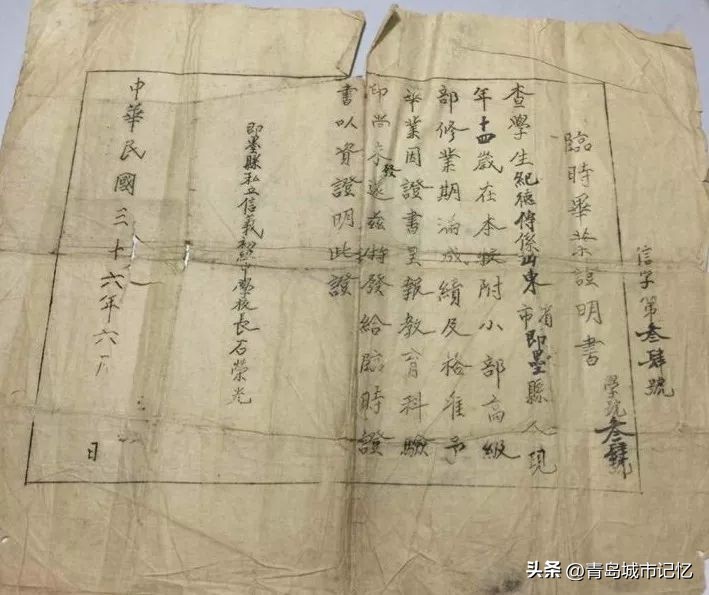 信字第叁肆號
學號叁肆號
臨時畢業證明書
查學生紀德傳係山東省市即墨縣人現
年十四歲在本校附小部高級
部修業期滿成績及格准予
畢業因證書呈報教育科驗
印尚未發還茲特發給臨時證
書以資證明此證
即墨縣私立信義初中學校長石榮光
中華民國三十六年六月 日
头条 @青岛城市记忆